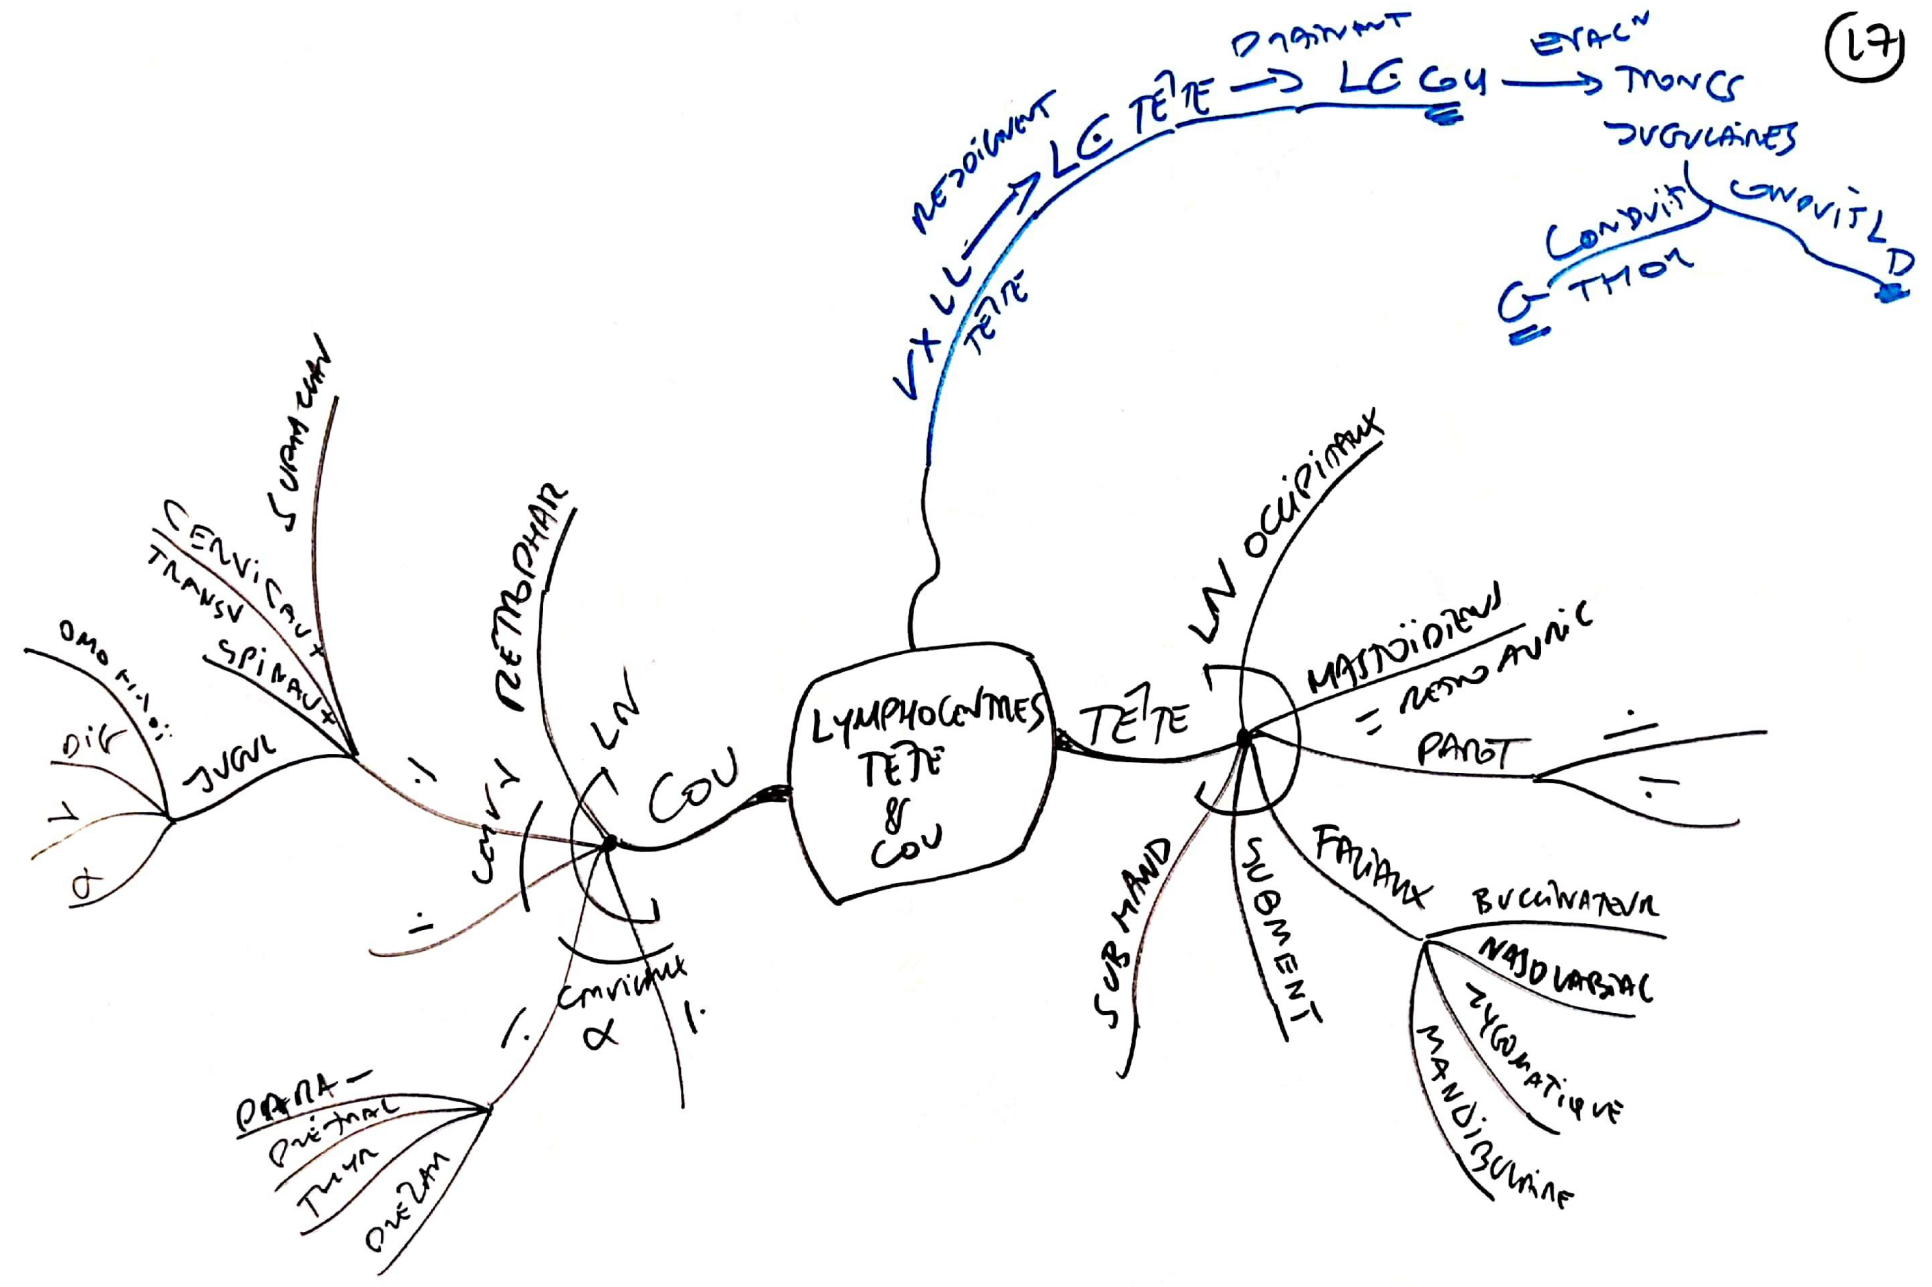 17
DRAINANT
EVACN
REJOIGNENT
LC TÊTE → LC COU → TRONCS
JUGULAIRES
VX LL
TÊTE
CONDUIT
THOR
G
CONDUIT L
D
LYMPHOCENTRES
TÊTE
&
COU
TÊTE
LN OCCIPITAUX
MASTOÏDIENS
= RETROAURIC
PAROT
FACIAUX
BUCCINATEUR
NASOLABIAL
ZYGOMATIQUE
MANDIBULAIRE
SUBMENT
SUBMAND
COU
LN
RETROPHAR
SUPRACLAV
CERVICAUX
TRANSV
SPINAUX
JUGUL
OMOHYOI
DIG
CERVICAUX
α
PARA-
PRÉTRAC
THYR
PRÉLAR